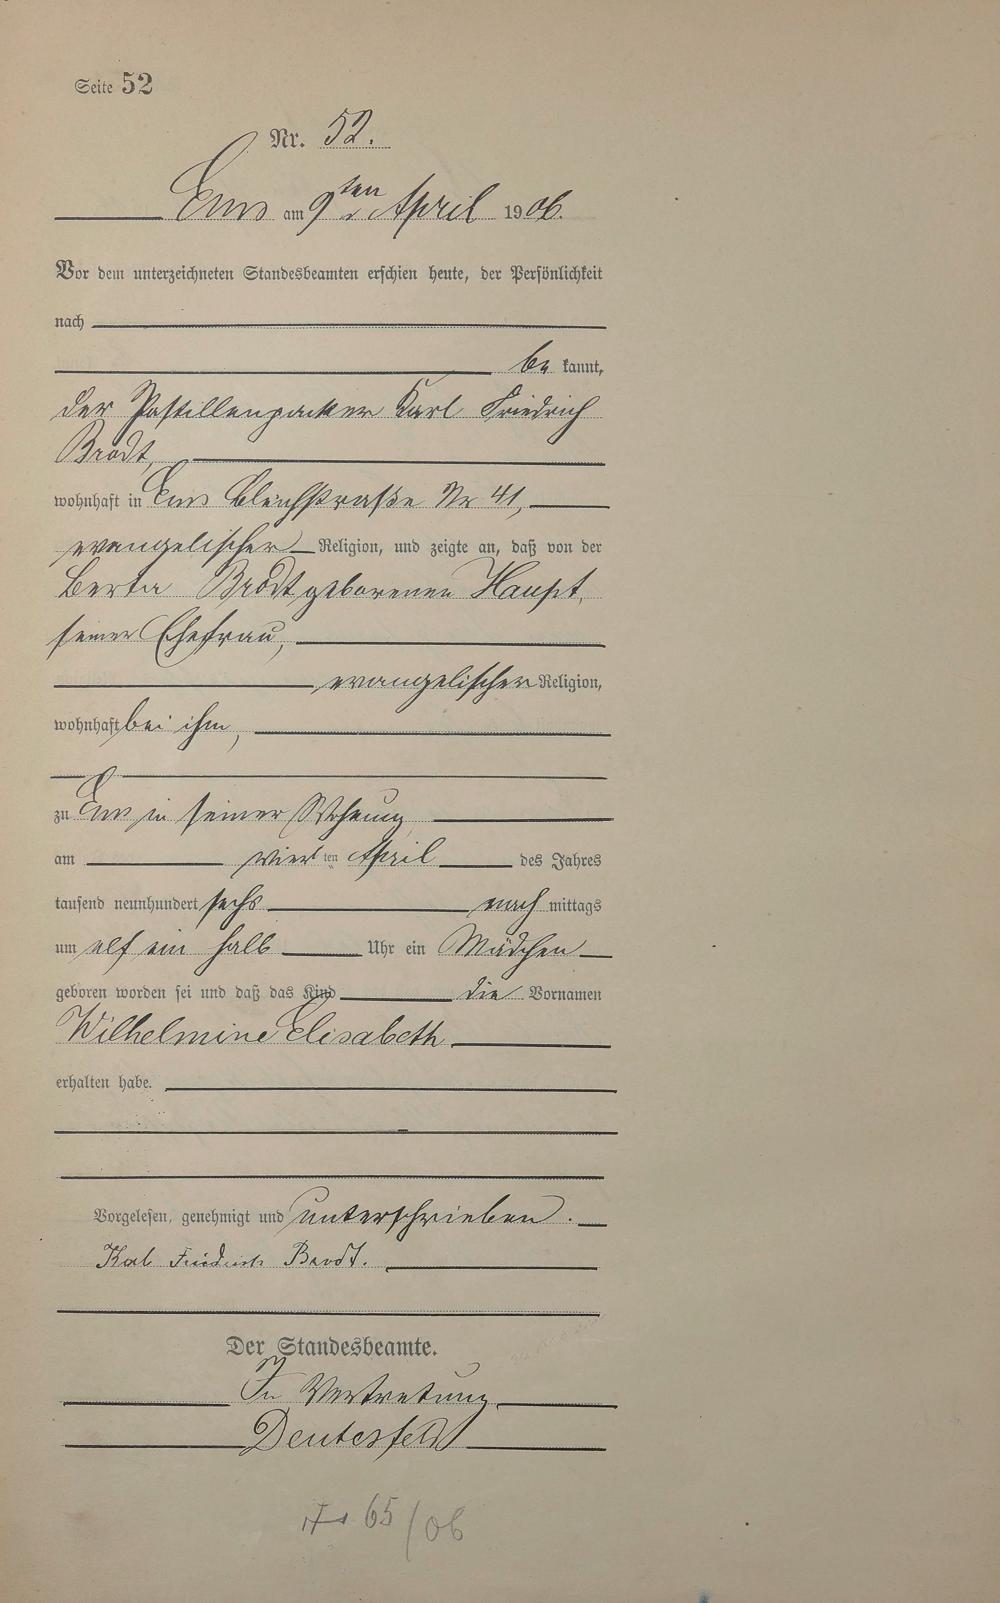 Seite 52
Nr. 52.
Ems am 9ten April 1906.
Vor dem unterzeichneten Standesbeamten erschien heute, der Persönlichkeit
nach
be kannt,
der Pastillenpacker Karl Friedrich
Brodt,
wohnhaft in Ems Bleichstraße Nr 41,
evangelischer Religion, und zeigte an, daß von der
Berta Brodt geborenen Haupt,
seiner Ehefrau,
evangelischer Religion,
wohnhaft bei ihm,
zu Ems in seiner Wohnung
am vierten April des Jahres
tausend neunhundert sechs nach mittags
um elf ein halb Uhr ein Mädchen
geboren worden sei und daß das Kind die Vornamen
Wilhelmine Elisabeth
erhalten habe.
Vorgelesen, genehmigt und unterschrieben.
Karl Friedrich Brodt.
Der Standesbeamte.
In Vertretung
Deutesfeld
65/06